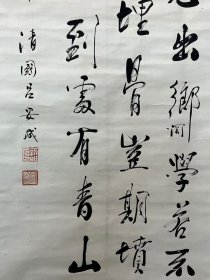 出鄉関學若不
埋骨豈期墳
到處有青山
清國呂安成